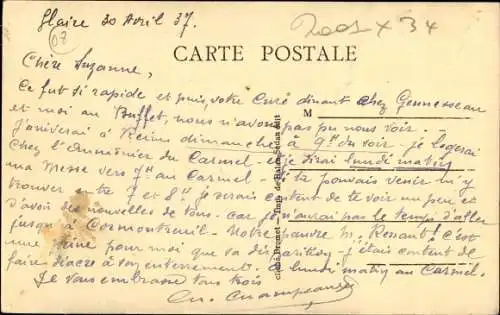 Glaire 30 Avril 37.
2001 x 34
07
CARTE POSTALE
Chère Suzanne,
Ce fut si rapide et puis, votre Curé dinant chez Gennesseau
et moi au Buffet, nous n'avons pas pu nous voir.
M
J'arriverai à Reims dimanche à 9h du soir. je logerai
chez l'Aumônier du Carmel et je dirai lundi matin
ma Messe vers 7h au Carmel. Si tu pouvais venir m'y
trouver entre 7 et 8h je serais content de te voir un peu et
d'avoir des nouvelles de tous. car je n'aurai pas le temps d'aller
jusqu'à Cormontreuil. Notre pauvre M. Renault! c'est
une peine pour moi que sa disparition. j'étais content de
faire diacre à son enterrement. à lundi matin au Carmel.
Je vous embrasse tous trois